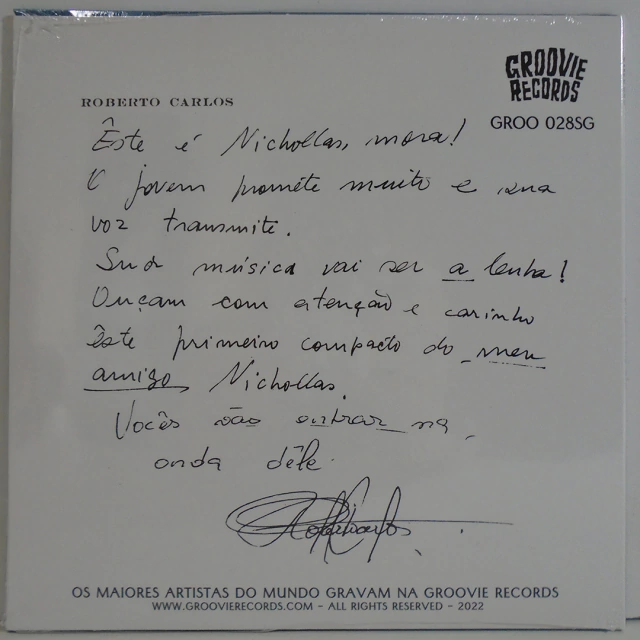 GROOVIE
RECORDS
ROBERTO CARLOS
GROO 028SG
Êste é Nichollas, mora!
O jovem promete muito e sua
voz transmite.
Sua música vai ser a lenha!
Ouçam com atenção e carinho
êste primeiro compacto do meu
amigo, Nichollas.
Vocês vão entrar na
onda dêle.
Roberto Carlos
OS MAIORES ARTISTAS DO MUNDO GRAVAM NA GROOVIE RECORDS
WWW.GROOVIERECORDS.COM – ALL RIGHTS RESERVED – 2022